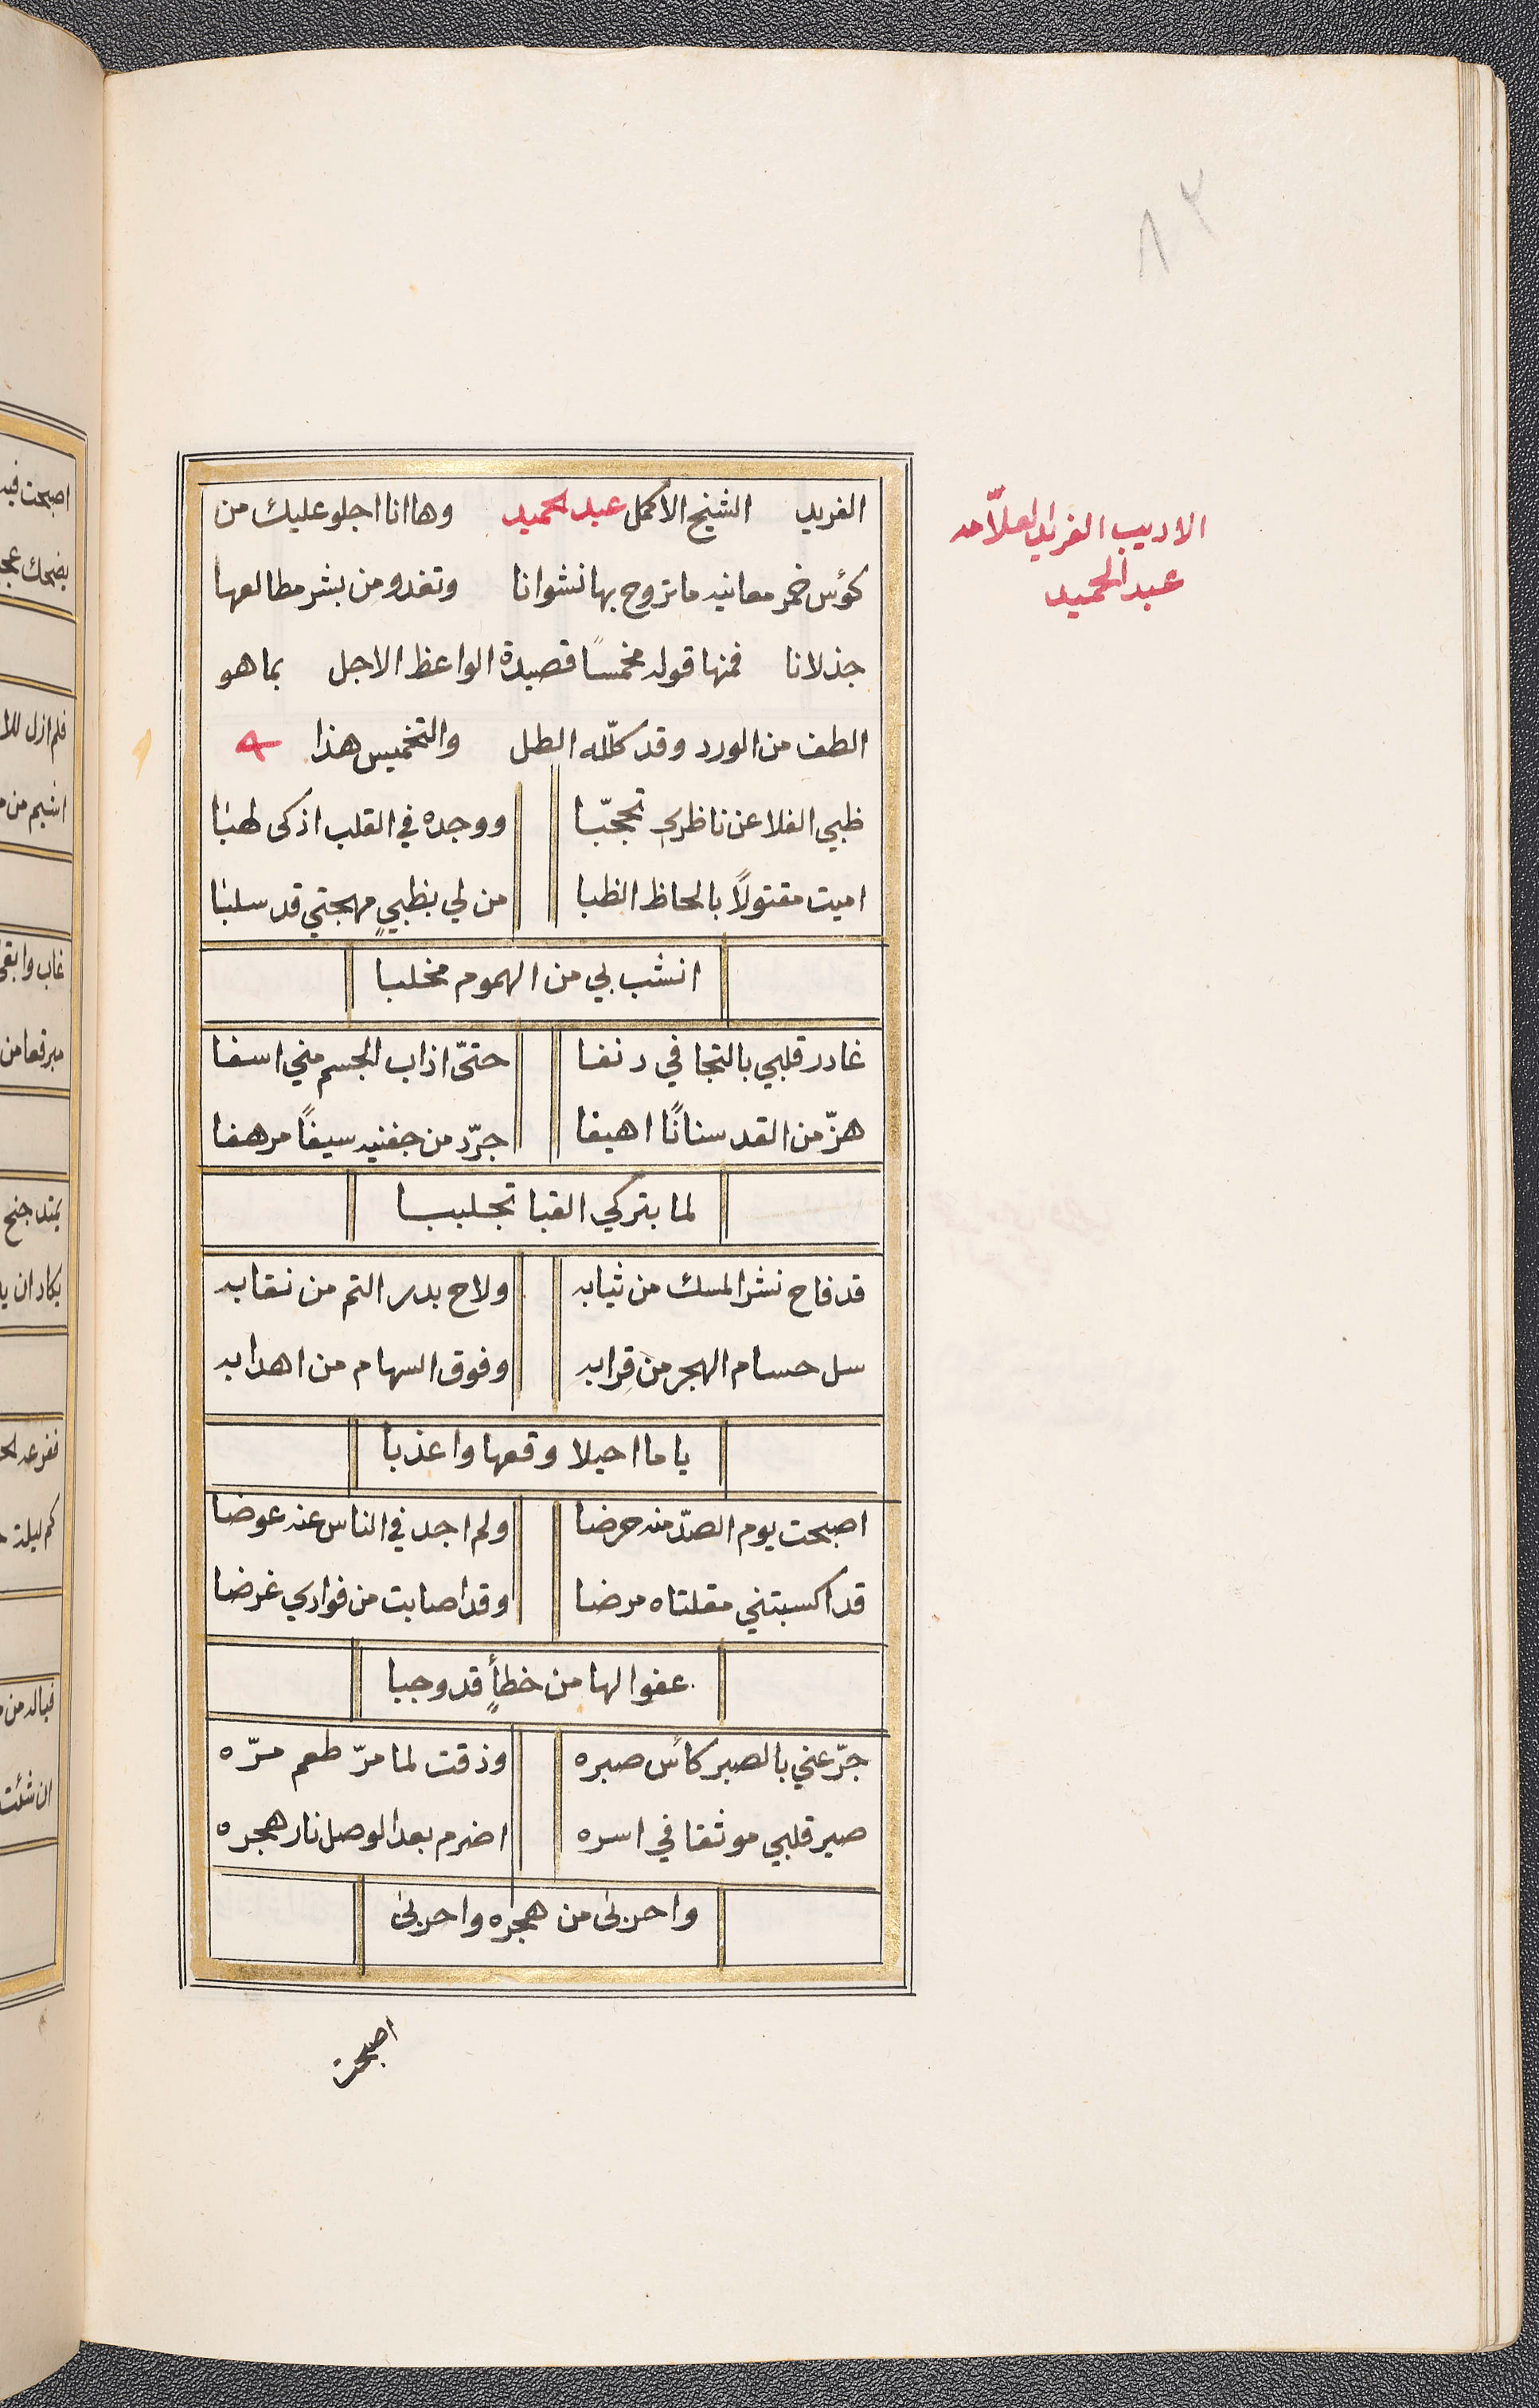 ٨٢
الاديب الفريد العلّامه
عبد الحميد
الفريد الشيخ الاكمل عبد الحميد وها انا اجلو عليك من
كؤس خمر معانيه ما تروح بها نشوانا وتغدو من بشر مطالعها
جذلانا فمنها قوله مخمسًا قصيدة الواعظ الاجل بما هو
الطف من الورد وقد كلّله الطل والتخميس هذا
ظبي الفلا عن ناظري تحجّبا ووجده في القلب اذكى لهبا
اميت مقتولًا بالحاظ الظبا من لي بظبيٍ مهجتي قد سلبا
انشب لي من الهموم مخلبا
غادر قلبي بالتجافي دنفا حتّى اذاب الجسم مني اسفا
هزّ من القد سنانًا اهيفا جرّد من جفنيه سيفًا مرهفا
لما بتركي القبا تجلببا
قد فاح نشر المسك من ثيابه ولاح بدر التم من نقابه
سل حسام الهجر من قِرابه وفوق السهام من اهدابه
يا ما احيلا وقعها واعذبا
اصبحت يوم الصدّ منه حرضا ولم اجد في الناس عنه عوضا
قد اكسبتني مقلتاه مرضا وقد اصابت من فوادي غرضا
عفوا لها من خطأٍ قد وجبا
جرّعني بالصبر كأس صبره وذقت لما مرّ طعم مرّه
صير قلبي موثقا في اسره اضرم بعد الوصل نار هجره
واحربى من هجره واحربى
اصبحت